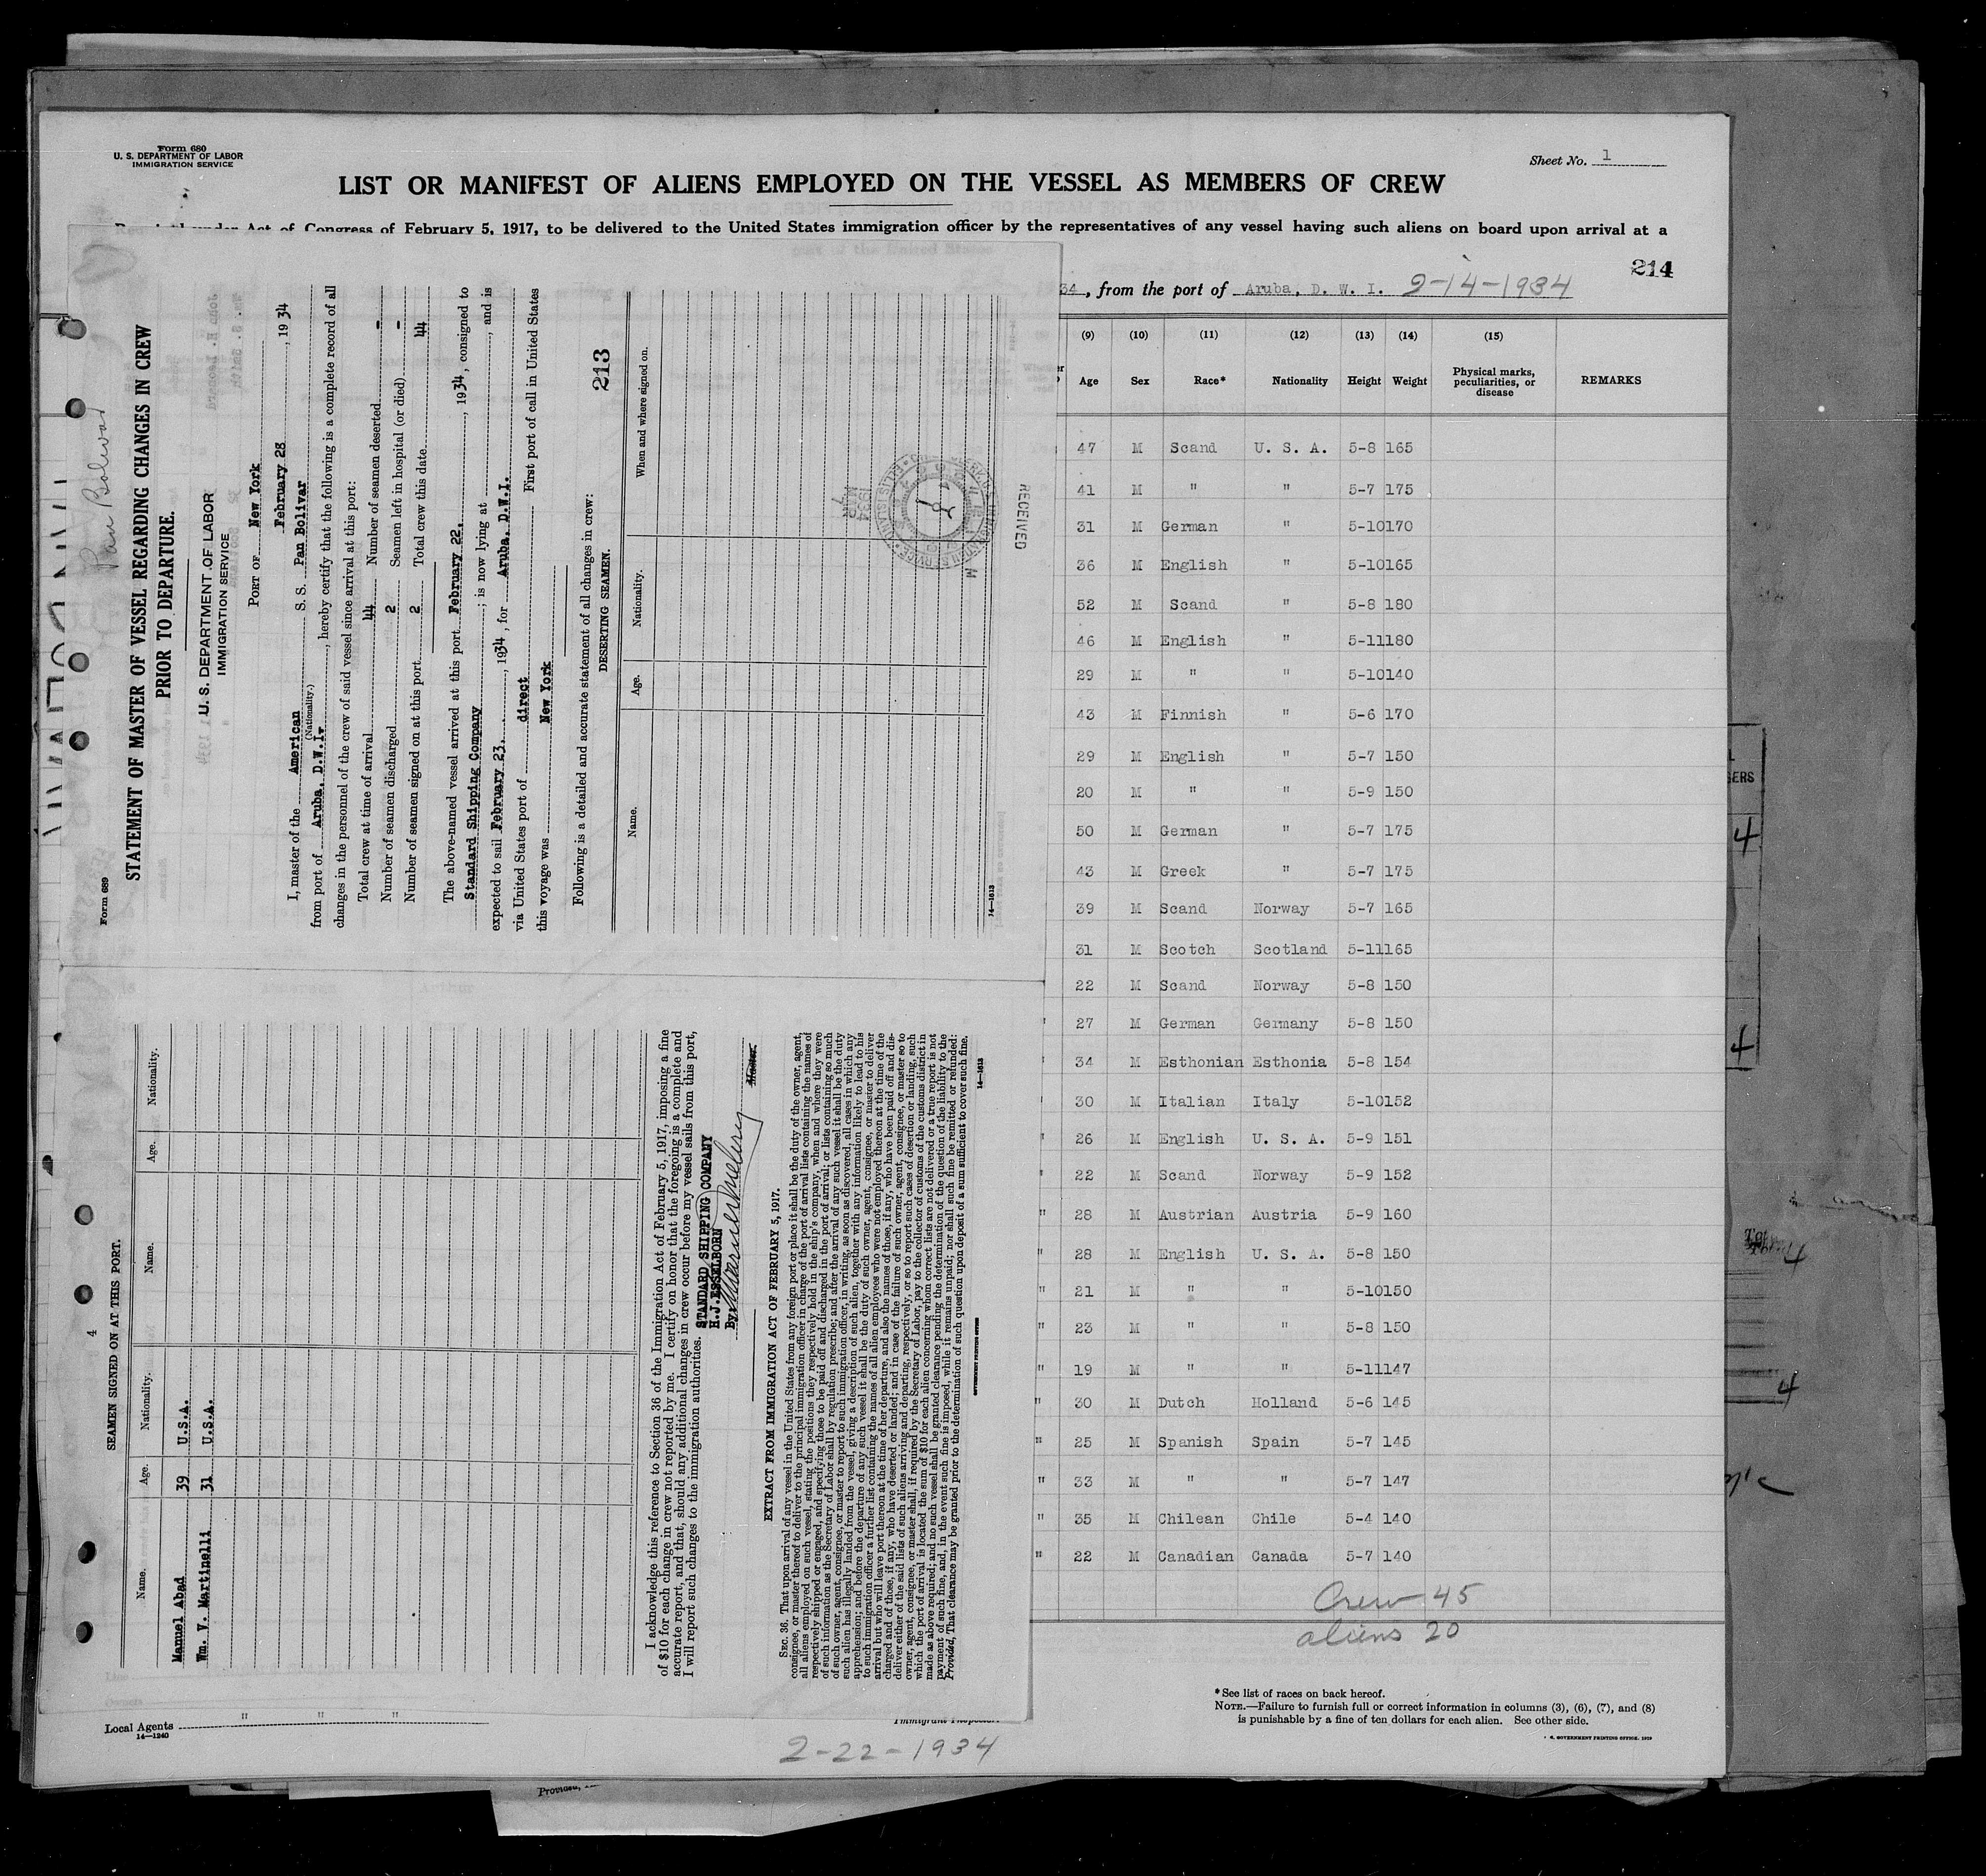 Form 680
U. S. DEPARTMENT OF LABOR
IMMIGRATION SERVICE
Sheet No. 1
LIST OR MANIFEST OF ALIENS EMPLOYED ON THE VESSEL AS MEMBERS OF CREW
under Act of Congress of February 5, 1917, to be delivered to the United States immigration officer by the representatives of any vessel having such aliens on board upon arrival at a
214
34, from the port of Aruba, D. W. I. 2-14-1934
(9) (10) (11) (12) (13) (14) (15)
Age Sex Race* Nationality Height Weight Physical marks, peculiarities, or disease REMARKS
47 M Scand U. S. A. 5-8 165
41 M " " 5-7 175
31 M German " 5-10 170
36 M English " 5-10 165
52 M Scand " 5-8 180
46 M English " 5-11 180
29 M " " 5-10 140
43 M Finnish " 5-6 170
29 M English " 5-7 150
20 M " " 5-9 150
50 M German " 5-7 175
43 M Greek " 5-7 175
39 M Scand Norway 5-7 165
31 M Scotch Scotland 5-11 165
22 M Scand Norway 5-8 150
27 M German Germany 5-8 150
34 M Esthonian Esthonia 5-8 154
30 M Italian Italy 5-10 152
26 M English U. S. A. 5-9 151
22 M Scand Norway 5-9 152
" 28 M Austrian Austria 5-9 160
" 28 M English U. S. A. 5-8 150
" 21 M " " 5-10 150
" 23 M " " 5-8 150
" 19 M " " 5-11 147
" 30 M Dutch Holland 5-6 145
" 25 M Spanish Spain 5-7 145
" 33 M " " 5-7 147
" 35 M Chilean Chile 5-4 140
" 22 M Canadian Canada 5-7 140
Crew 45
aliens 20
* See list of races on back hereof.
NOTE.—Failure to furnish full or correct information in columns (3), (6), (7), and (8)
is punishable by a fine of ten dollars for each alien. See other side.
Local Agents " " "
14—1240
Immigrant Inspector
2-22-1934
Form 689
Pan Bolivar
STATEMENT OF MASTER OF VESSEL REGARDING CHANGES IN CREW
PRIOR TO DEPARTURE.
U. S. DEPARTMENT OF LABOR
IMMIGRATION SERVICE
PORT OF New York
February 28, 1934
I, master of the American S. S. Pan Bolivar
(Nationality.)
from port of Aruba, D.W.I., hereby certify that the following is a complete record of all
changes in the personnel of the crew of said vessel since arrival at this port:
Total crew at time of arrival 44 Number of seamen deserted -
Number of seamen discharged 2 Seamen left in hospital (or died) -
Number of seamen signed on at this port 2 Total crew this date 44
The above-named vessel arrived at this port February 22, 1934, consigned to
Standard Shipping Company; is now lying at , and is
expected to sail February 23, 1934, for Aruba, D.W.I.
via United States port of direct First port of call in United States
this voyage was New York
Following is a detailed and accurate statement of all changes in crew:
DESERTING SEAMEN.
213
Name. Age. Nationality. When and where signed on.
RECEIVED
14—1613
4
SEAMEN SIGNED ON AT THIS PORT.
Name. Age. Nationality. Name. Age. Nationality.
Manuel Abad 39 U.S.A.
Wm. V. Martinelli 31 U.S.A.
I acknowledge this reference to Section 36 of the Immigration Act of February 5, 1917, imposing a fine
of $10 for each change in crew not reported by me. I certify on honor that the foregoing is a complete and
accurate report, and that, should any additional changes in crew occur before my vessel sails from this port,
I will report such changes to the immigration authorities.
STANDARD SHIPPING COMPANY
H.J. ESSELBORN
By
Master.
EXTRACT FROM IMMIGRATION ACT OF FEBRUARY 5, 1917.
SEC. 36. That upon arrival of any vessel in the United States from any foreign port or place it shall be the duty of the owner, agent,
consignee, or master thereof to deliver to the principal immigration officer in charge of the port of arrival lists containing the names of
all aliens employed on such vessel, stating the positions they respectively hold in the ship's company, when and where they were
respectively shipped or engaged, and specifying those to be paid off and discharged in the port of arrival; or lists containing so much
of such information as the Secretary of Labor shall by regulation prescribe; and after the arrival of any such vessel it shall be the duty
of such owner, agent, consignee, or master to report to such immigration officer, in writing, as soon as discovered, all cases in which any
such alien has illegally landed from the vessel, giving a description of such alien, together with any information likely to lead to his
apprehension; and before the departure of any such vessel it shall be the duty of such owner, agent, consignee, or master to deliver
to such immigration officer a further list containing the names of all alien employees who were not employed thereon at the time of the
arrival but who will leave port thereon at the time of her departure, and also the names of those, if any, who have been paid off and dis-
charged and of those, if any, who have deserted or landed; and in case of the failure of such owner, agent, consignee, or master so to
deliver either of the said lists of such aliens arriving and departing, respectively, or so to report such cases of desertion or landing, such
owner, agent, consignee, or master shall, if required by the Secretary of Labor, pay to the collector of customs of the customs district in
which the port of arrival is located the sum of $10 for each alien concerning whom correct lists are not delivered or a true report is not
made as above required; and no such vessel shall be granted clearance pending the determination of the question of the liability to the
payment of such fine, and, in the event such fine is imposed, while it remains unpaid; nor shall such fine be remitted or refunded:
Provided, That clearance may be granted prior to the determination of such question upon deposit of a sum sufficient to cover such fine.
14—1613